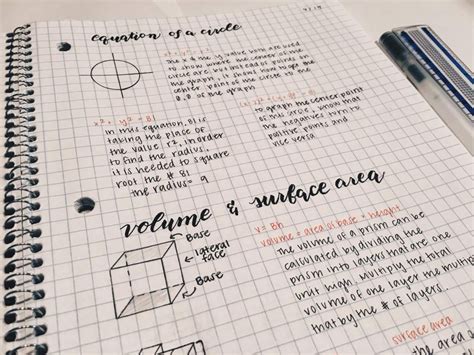 equation of a circle
the x & the y value both are used
to show where the center of the
circle are, but instead of points on
the graph, it should have the
center point of the circle to the
0,0 of the graph
x² + y² = 81
in this equation, 81 is
taking the place of
the value r², in order
to find the radius,
it is needed to square
root the # 81
the radius = 9
to graph the center point
of this circle, know that
the negatives turn to
positive points and
vice versa
volume & surface area
Base
lateral
face
Base
V = Bh
volume = area of base × height
The volume of a prism can be
calculated by dividing the
prism into layers that are one
unit high, multiply the total
volume of one layer the multip
that by the # of layers.
surface area
the area